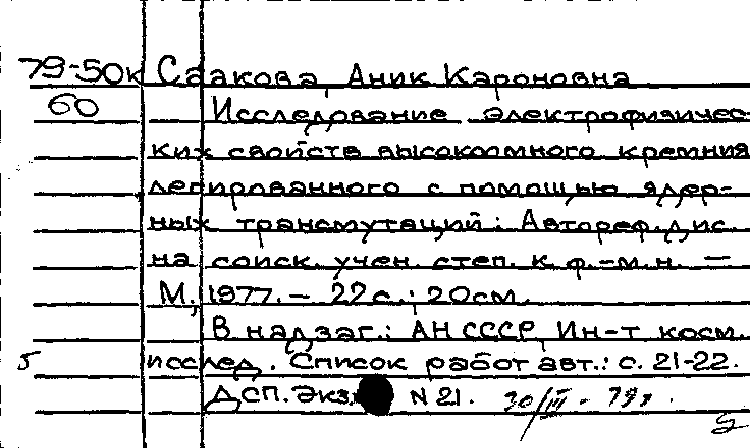 79-50к Саакова, Аник Кароновна
60 Исследование электрофизичес-
ких свойств высокоомного кремния
легированного с помощью ядер-
ных трансмутаций: Автореф. дис.
на соиск. учен. степ. к. ф.-м.н. —
М., 1977. — 22 с.; 20 см.
В надзаг.: АН СССР, Ин-т косм.
5 исслед. Список работ авт.: с. 21-22.
ДСП. Экз. № 21. 30/III - 79г.